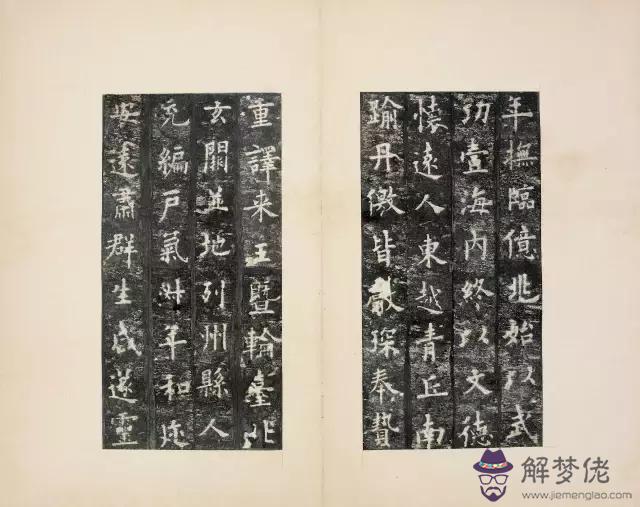 年撫臨億兆始以武
功壹海内終以文德
懷遠人東越青丘南
踰丹徼皆獻琛奉贄
重譯来王暨輪臺北
玄闕並地列州縣人
充編戶氣淑年和迩
安遠肅群生咸遂靈
解梦佬
www.jiemenglao.com